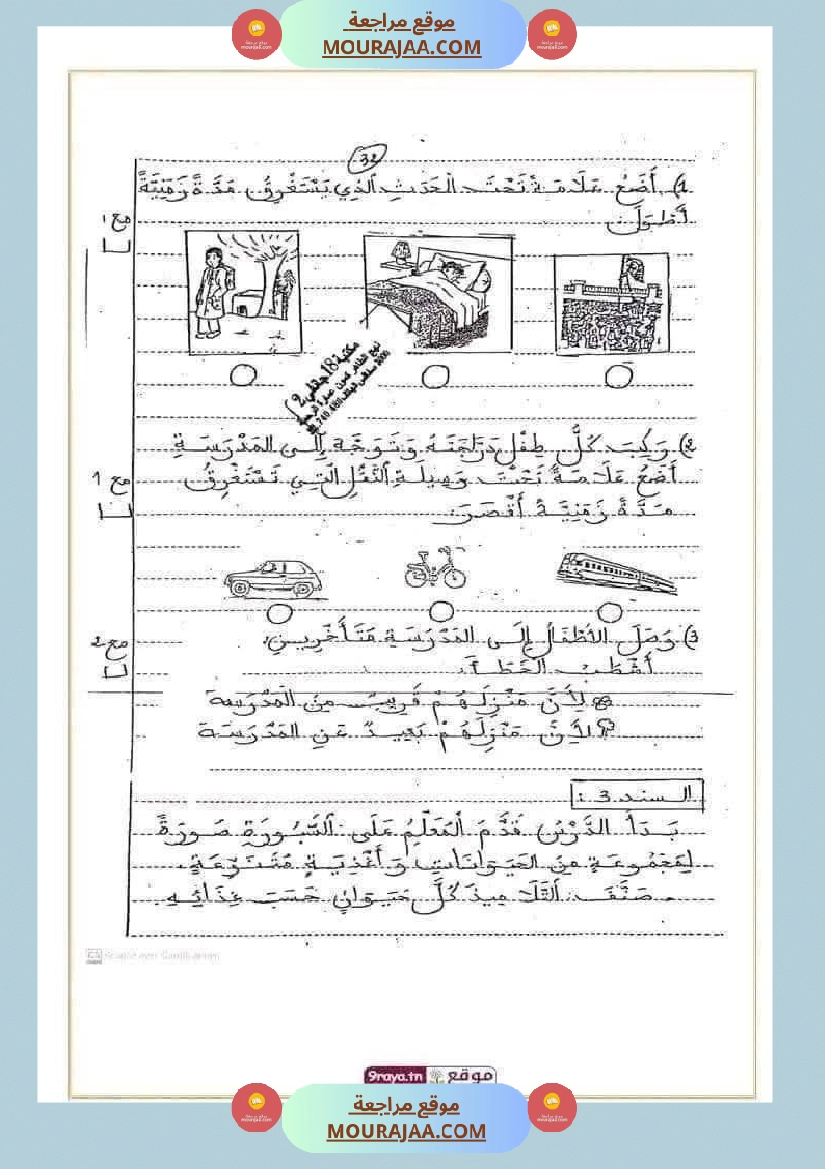 موقع مراجعة
MOURAJAA.COM
32
1) أَضَعُ عَلَامَةً تَحْتَ الْحَدَثِ الَّذِي يَسْتَغْرِقُ مُدَّةً زَمَنِيَّةً
أَطْوَلَ
مع 1
مكتبة 18 جانفي 2
2) رَكِبَ كُلُّ طِفْلٍ دَرَّاجَتَهُ وَتَوَجَّهَ إِلَى المَدْرَسَةِ
أَضَعُ عَلَامَةً تَحْتَ وَسِيلَةِ النَّقْلِ الَّتِي تَسْتَغْرِقُ
مع 1
مُدَّةً زَمَنِيَّةً أَقْصَرَ
3) وَصَلَ الأَطْفَالُ إِلَى المَدْرَسَةِ مُتَأَخِّرِينَ.
مع 2
أَشْطُبُ الخَطَأَ
لِأَنَّ مَنْزِلَهُمْ قَرِيبٌ مِنَ الْمَدْرَسَةِ
لِأَنَّ مَنْزِلَهُمْ بَعِيدٌ عَنِ المَدْرَسَة
السند 3 :
بَدَأَ الدَّرْسُ قَدَّمَ الْمُعَلِّمُ عَلَى السَّبُّورَةِ صُورَةً
لِمَجْمُوعَةٍ مِنَ الحَيَوَانَاتِ وَ أَغْذِيَةٍ مُتَنَوِّعَةٍ.
صَنَّفَ التَّلَامِيذُ كُلَّ حَيَوَانٍ حَسَبَ غِذَائِهِ.
موقع 9raya.tn
موقع مراجعة
MOURAJAA.COM